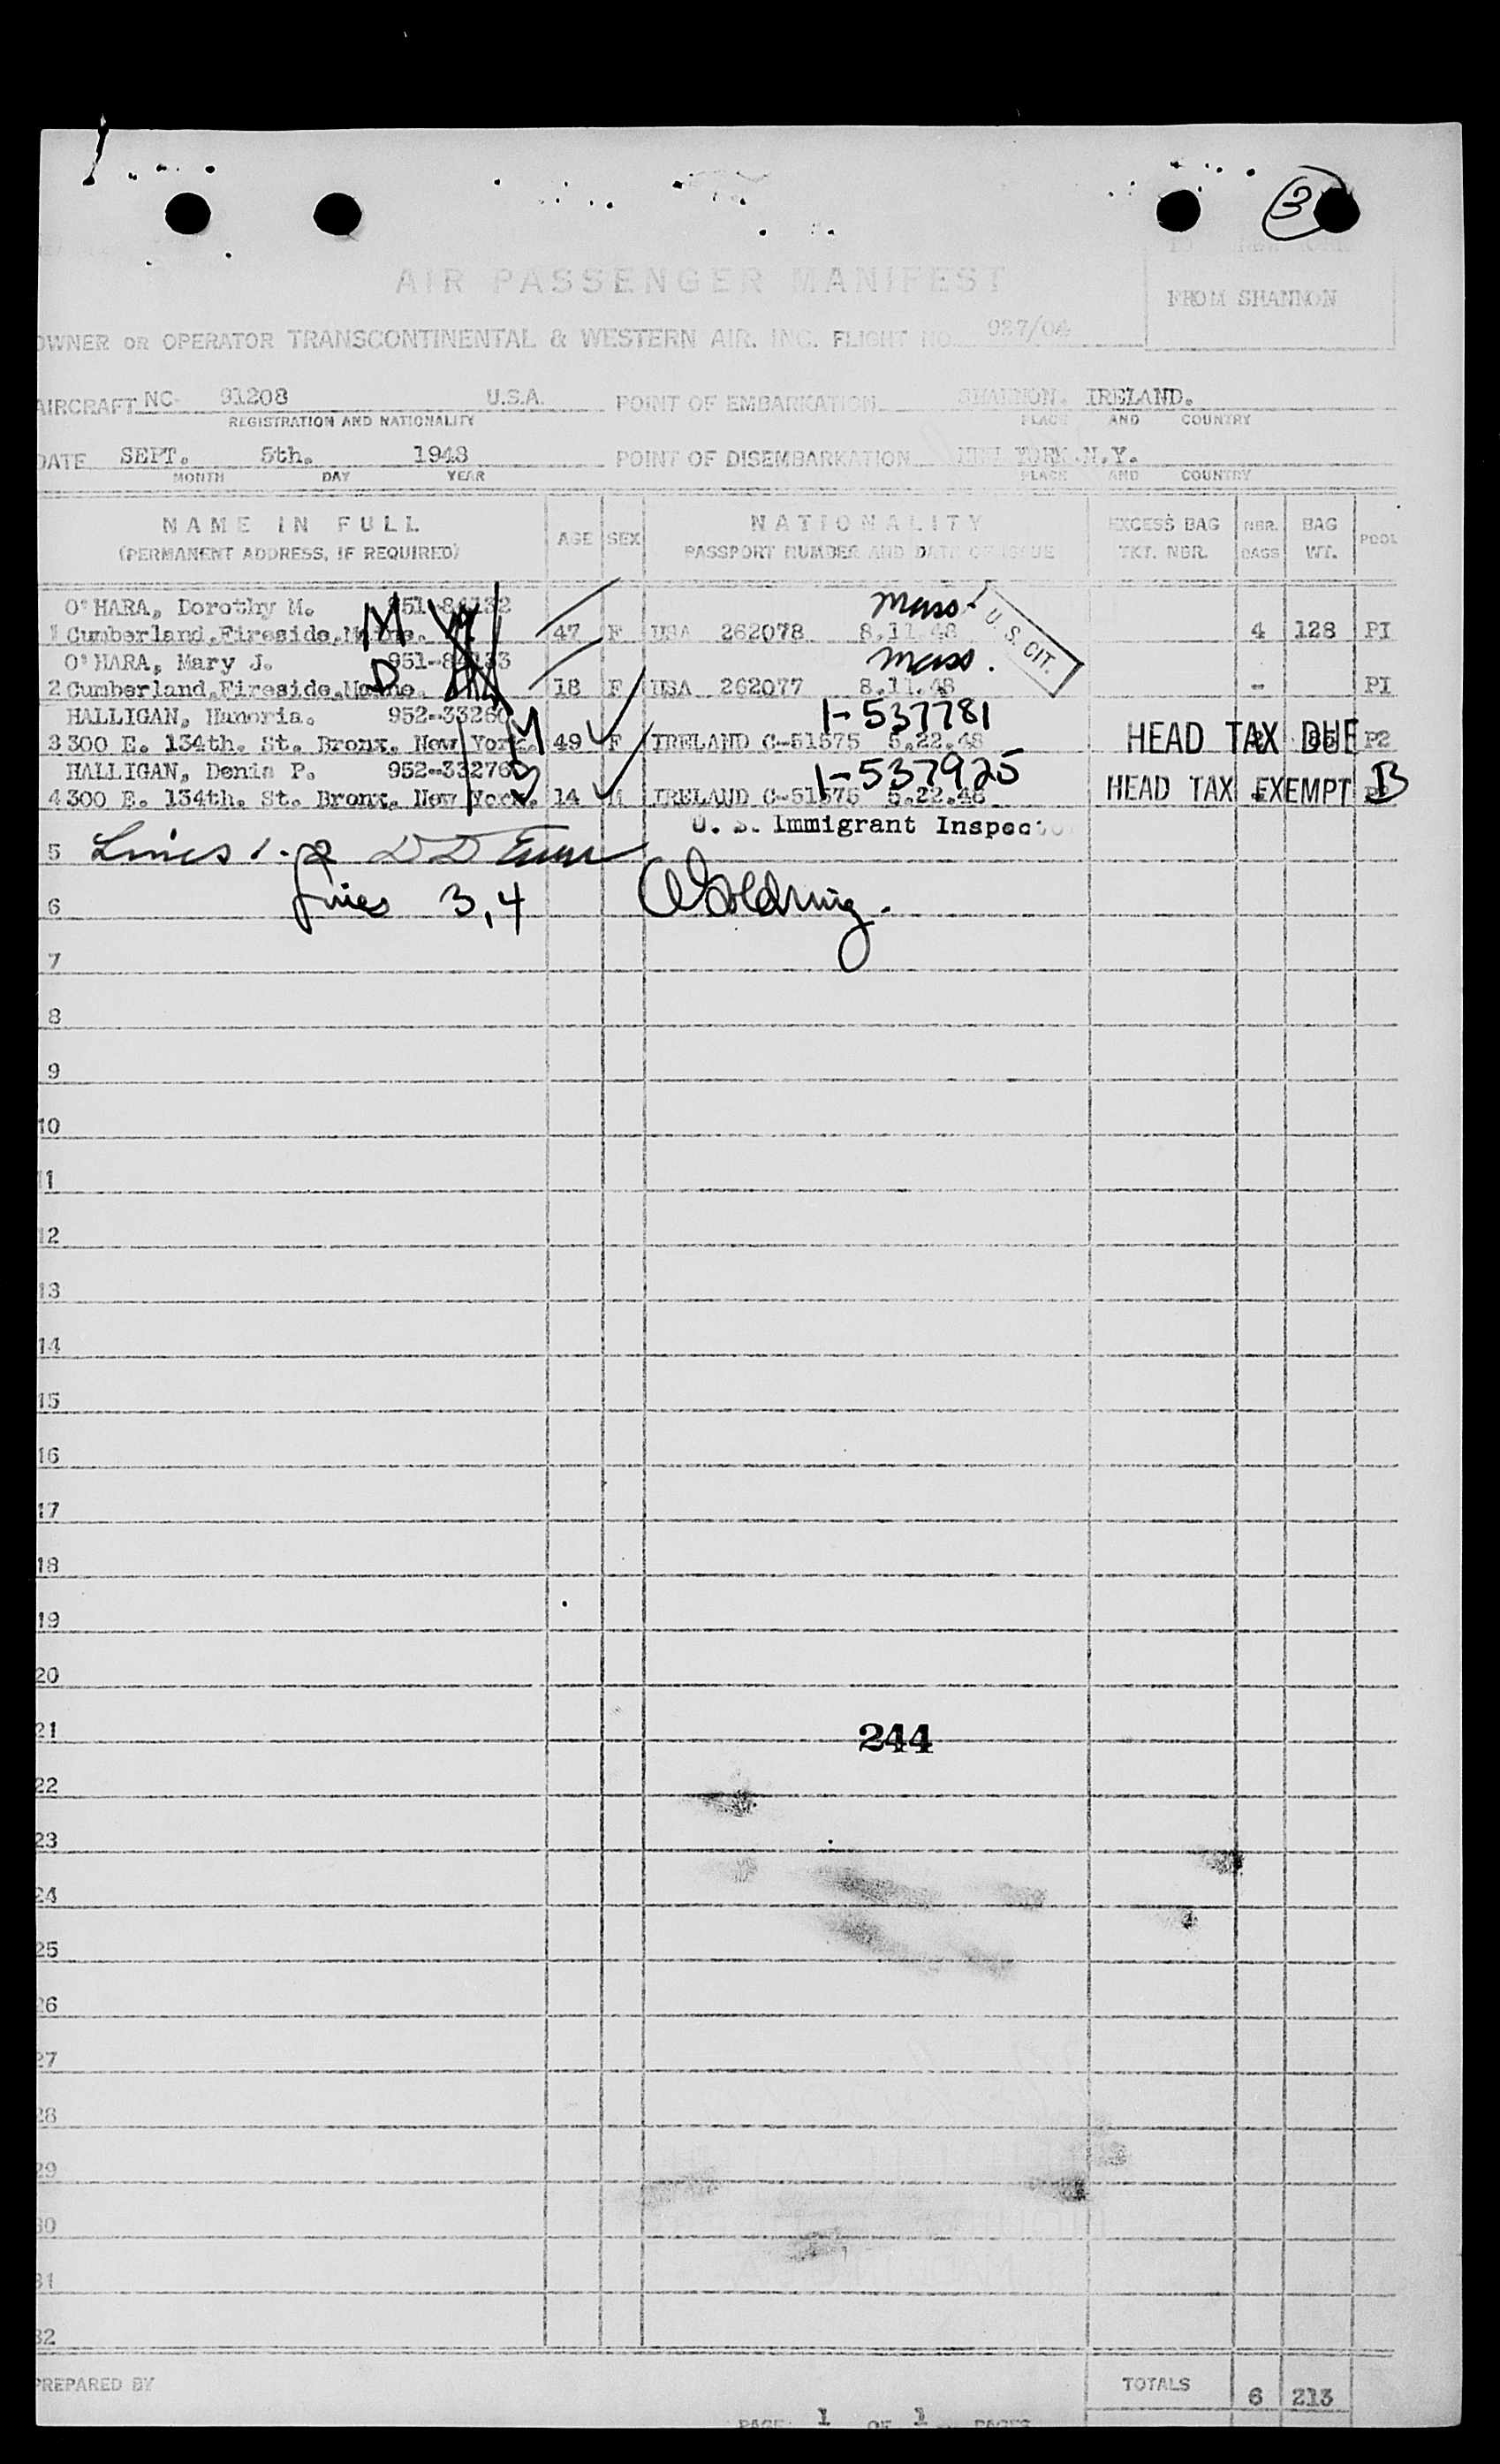 3
TO NEW YORK
AIR PASSENGER MANIFEST
FROM SHANNON
OWNER OR OPERATOR TRANSCONTINENTAL & WESTERN AIR. INC. FLIGHT NO. 927/04
AIRCRAFT NC- 91208 U.S.A. POINT OF EMBARKATION SHANNON. IRELAND.
REGISTRATION AND NATIONALITY PLACE AND COUNTRY
DATE SEPT. 5th. 1948 POINT OF DISEMBARKATION NEW YORK.N.Y.
MONTH DAY YEAR PLACE AND COUNTRY
NAME IN FULL AGE SEX NATIONALITY EXCESS BAG NBR. BAG POOL
(PERMANENT ADDRESS, IF REQUIRED) PASSPORT NUMBER AND DATE OF ISSUE TKT. NBR. BAGS WT.
O'HARA, Dorothy M. 951-84132 Mass.
1 Cumberland,Fireside,Maine. M 47 F USA 262078 8.11.48 U. S. CIT. 4 128 PI
O'HARA, Mary J. 951-84133 Mass.
2 Cumberland,Fireside,Maine. D 18 F USA 262077 8.11.48 - PI
HALLIGAN, Hanoria. 952-33260 1-537781
3 300 E. 134th. St. Bronx. New York. M 49 F IRELAND C-51575 5.22.48 HEAD TAX DUE 85 P2
HALLIGAN, Denis P. 952-33276 1-537925
4 300 E. 134th. St. Bronx. New York. 14 M IRELAND C-51575 5.22.48 HEAD TAX EXEMPT B
U. S. Immigrant Inspector
5 Lines 1-2
6 Lines 3,4 Goldring.
7
8
9
10
11
12
13
14
15
16
17
18
19
20
21 244
22
23
24
25
26
27
28
29
30
31
32
PREPARED BY TOTALS 6 213
PAGE 1 OF 1 PAGES